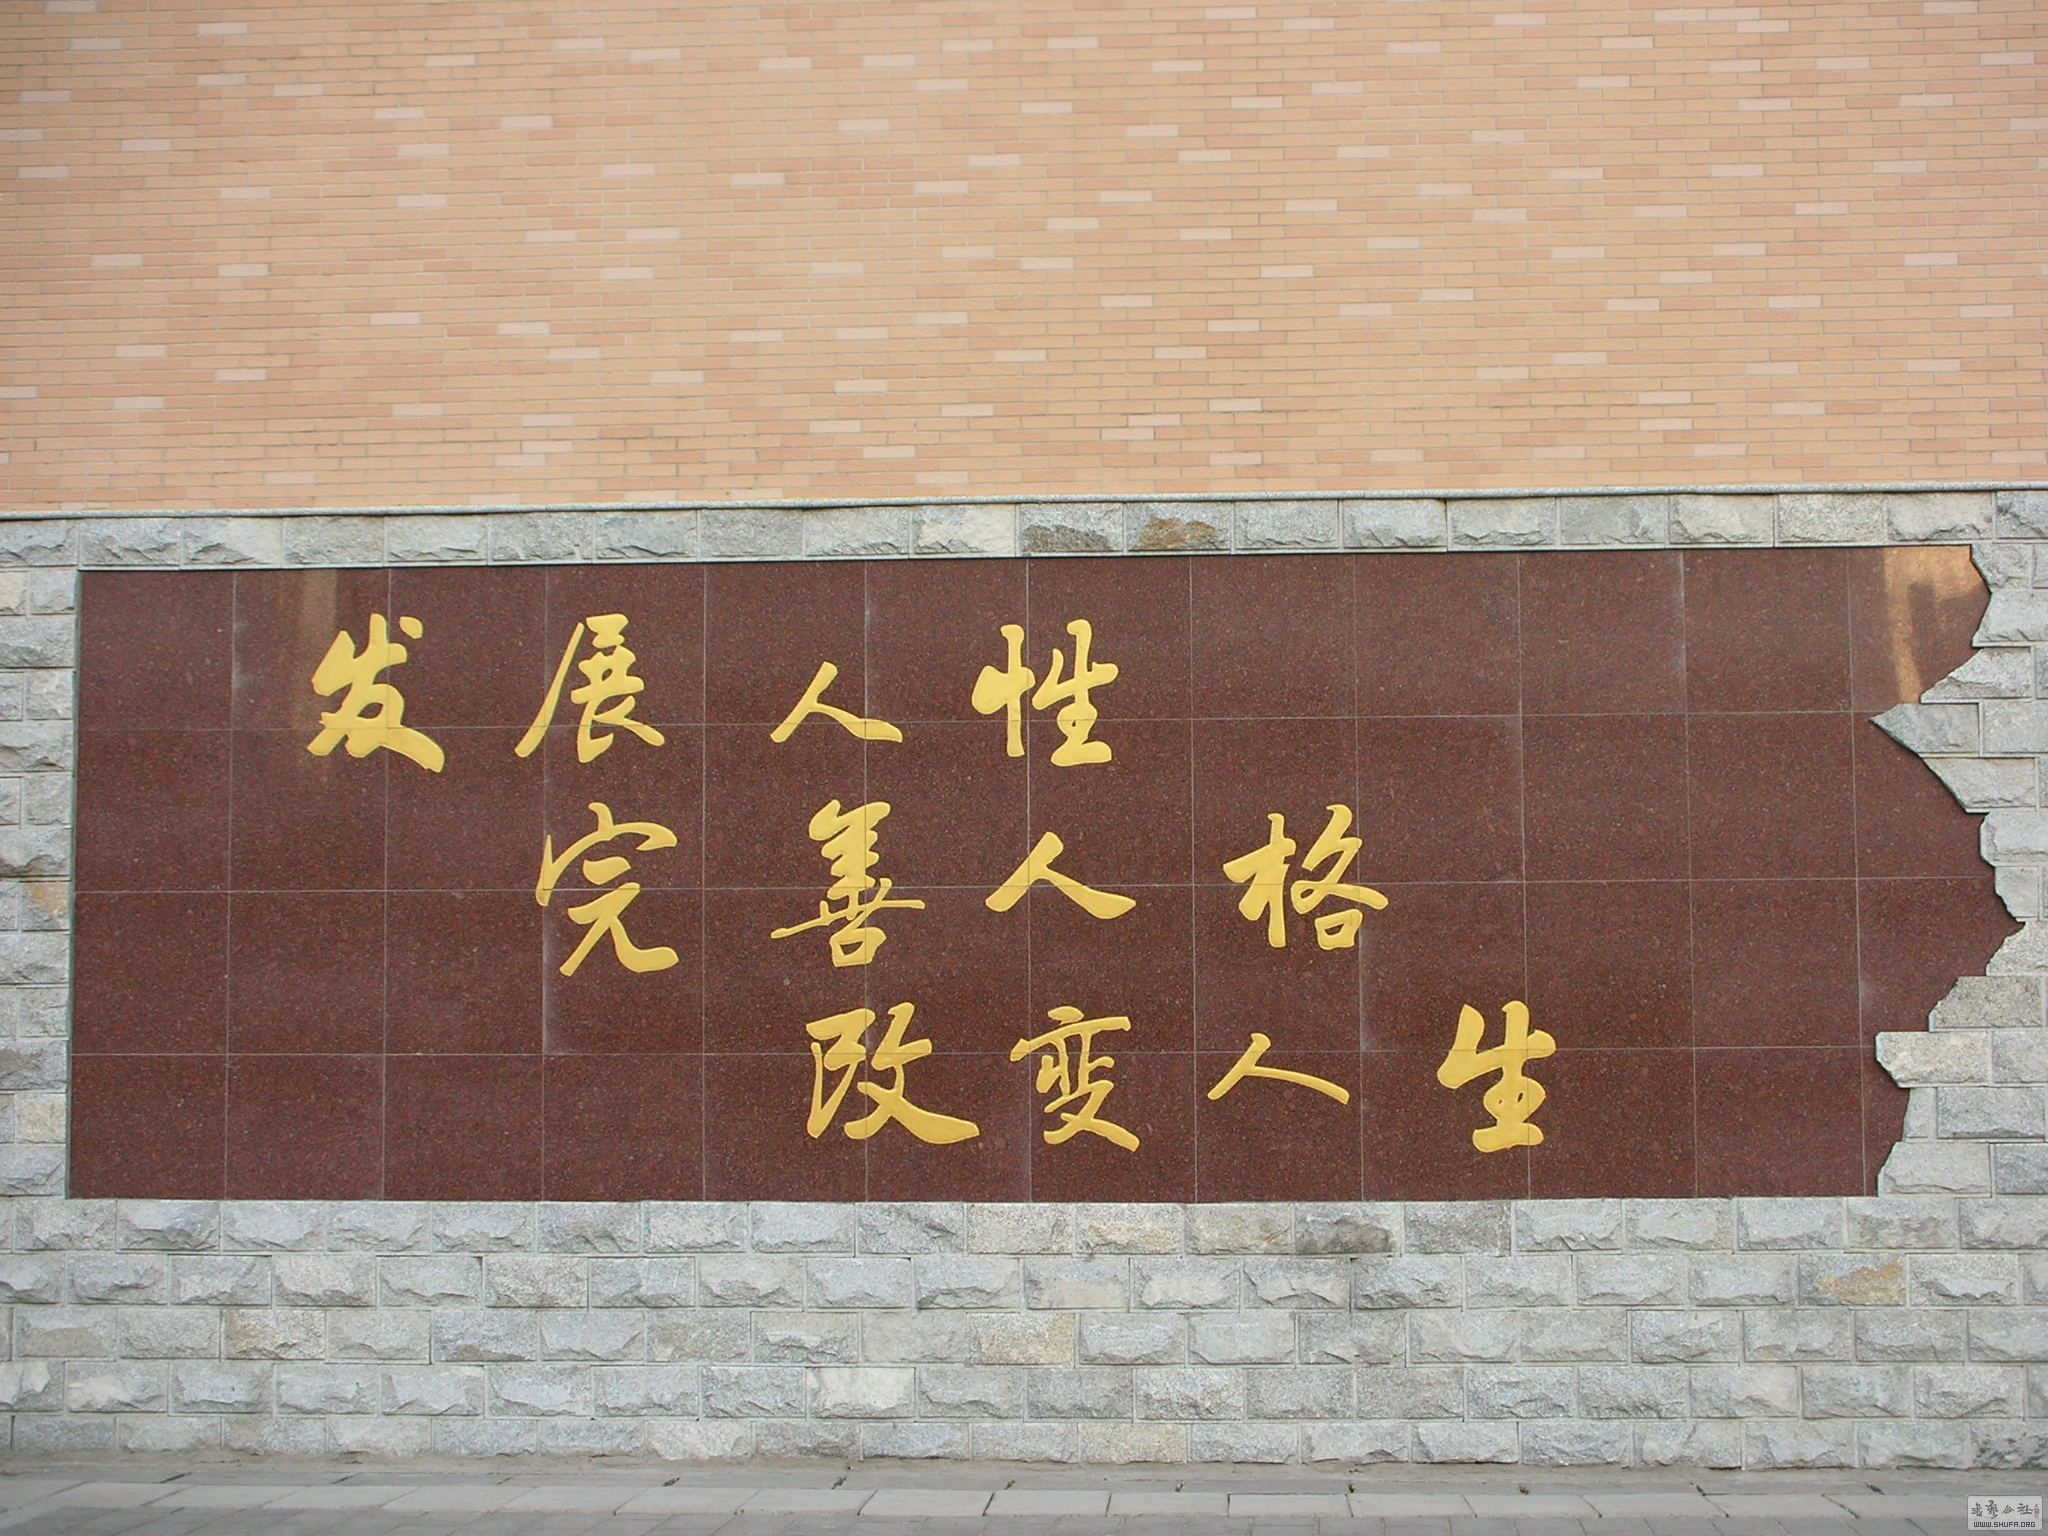 发展人性
完善人格
改变人生
书法公社
WWW.SHUFA.ORG